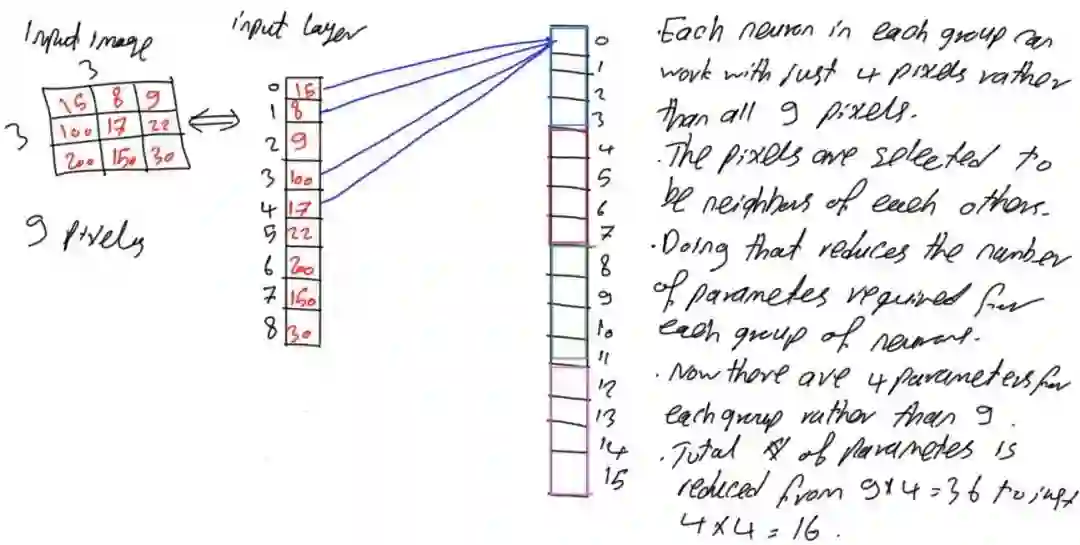 Input image
3
3
15 8 9
100 17 22
200 150 30
9 pixels
input layer
0 15
1 8
2 9
3 100
4 17
5 22
6 200
7 150
8 30
0
1
2
3
4
5
6
7
8
9
10
11
12
13
14
15
.Each neuron in each group can
work with just 4 pixels rather
than all 9 pixels.
.The pixels are selected to
be neighbors of each others.
.Doing that reduces the number
of parameters required for
each group of neurons.
.Now there are 4 parameters for
each group rather than 9.
.Total # of parameters is
reduced from 9x4=36 to just
4x4=16.